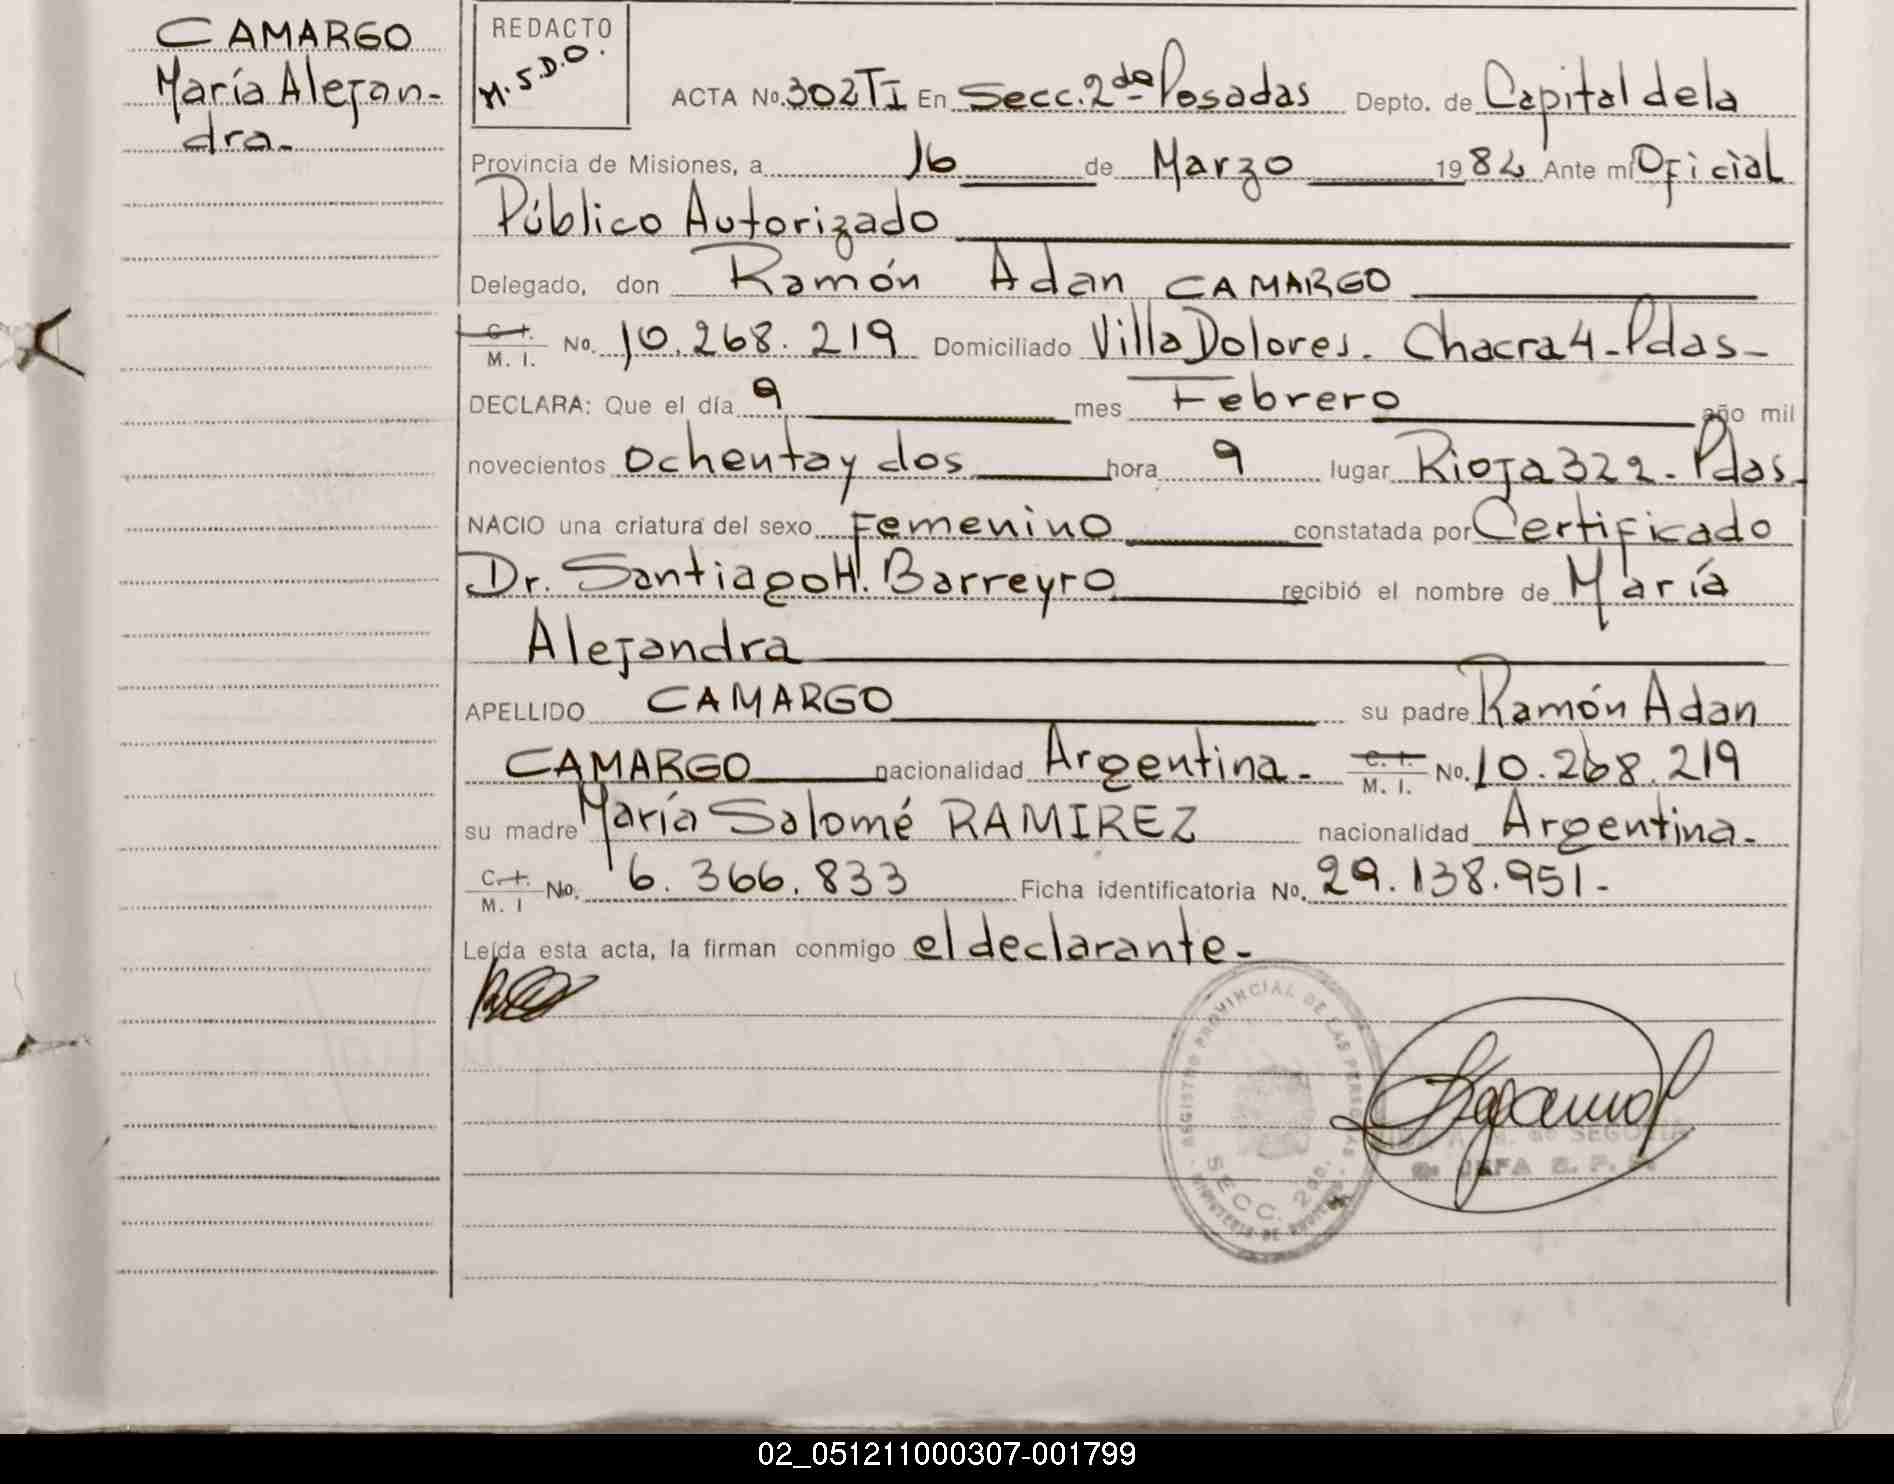 CAMARGO
María Alejan-
dra.-
REDACTO
M.S.D.O.
ACTA No. 302 TI En Secc. 2da Posadas Depto. de Capital de la
Provincia de Misiones, a 16 de Marzo 1982 Ante mí Oficial
Público Autorizado
Delegado, don Ramón Adan CAMARGO
C. I. M. I. No. 10.268.219 Domiciliado Villa Dolores. Chacra 4-Pdas-
DECLARA: Que el día 9 mes Febrero año mil
novecientos ochenta y dos hora 9 lugar Rioja 322-Pdas-
NACIO una criatura del sexo Femenino constatada por Certificado
Dr. Santiago H. Barreyro recibió el nombre de María
Alejandra
APELLIDO CAMARGO su padre Ramón Adan
CAMARGO nacionalidad Argentina- C. I. M. I. No. 10.268.219
su madre María Salomé RAMIREZ nacionalidad Argentina-
C. I. M. I No. 6.366.833 Ficha identificatoria No. 29.138.951-
Leída esta acta, la firman conmigo el declarante-
REGISTRO PROVINCIAL DE LAS PERSONAS
SECC. 2da.
de SEGOVIA
JEFA
02_051211000307-001799